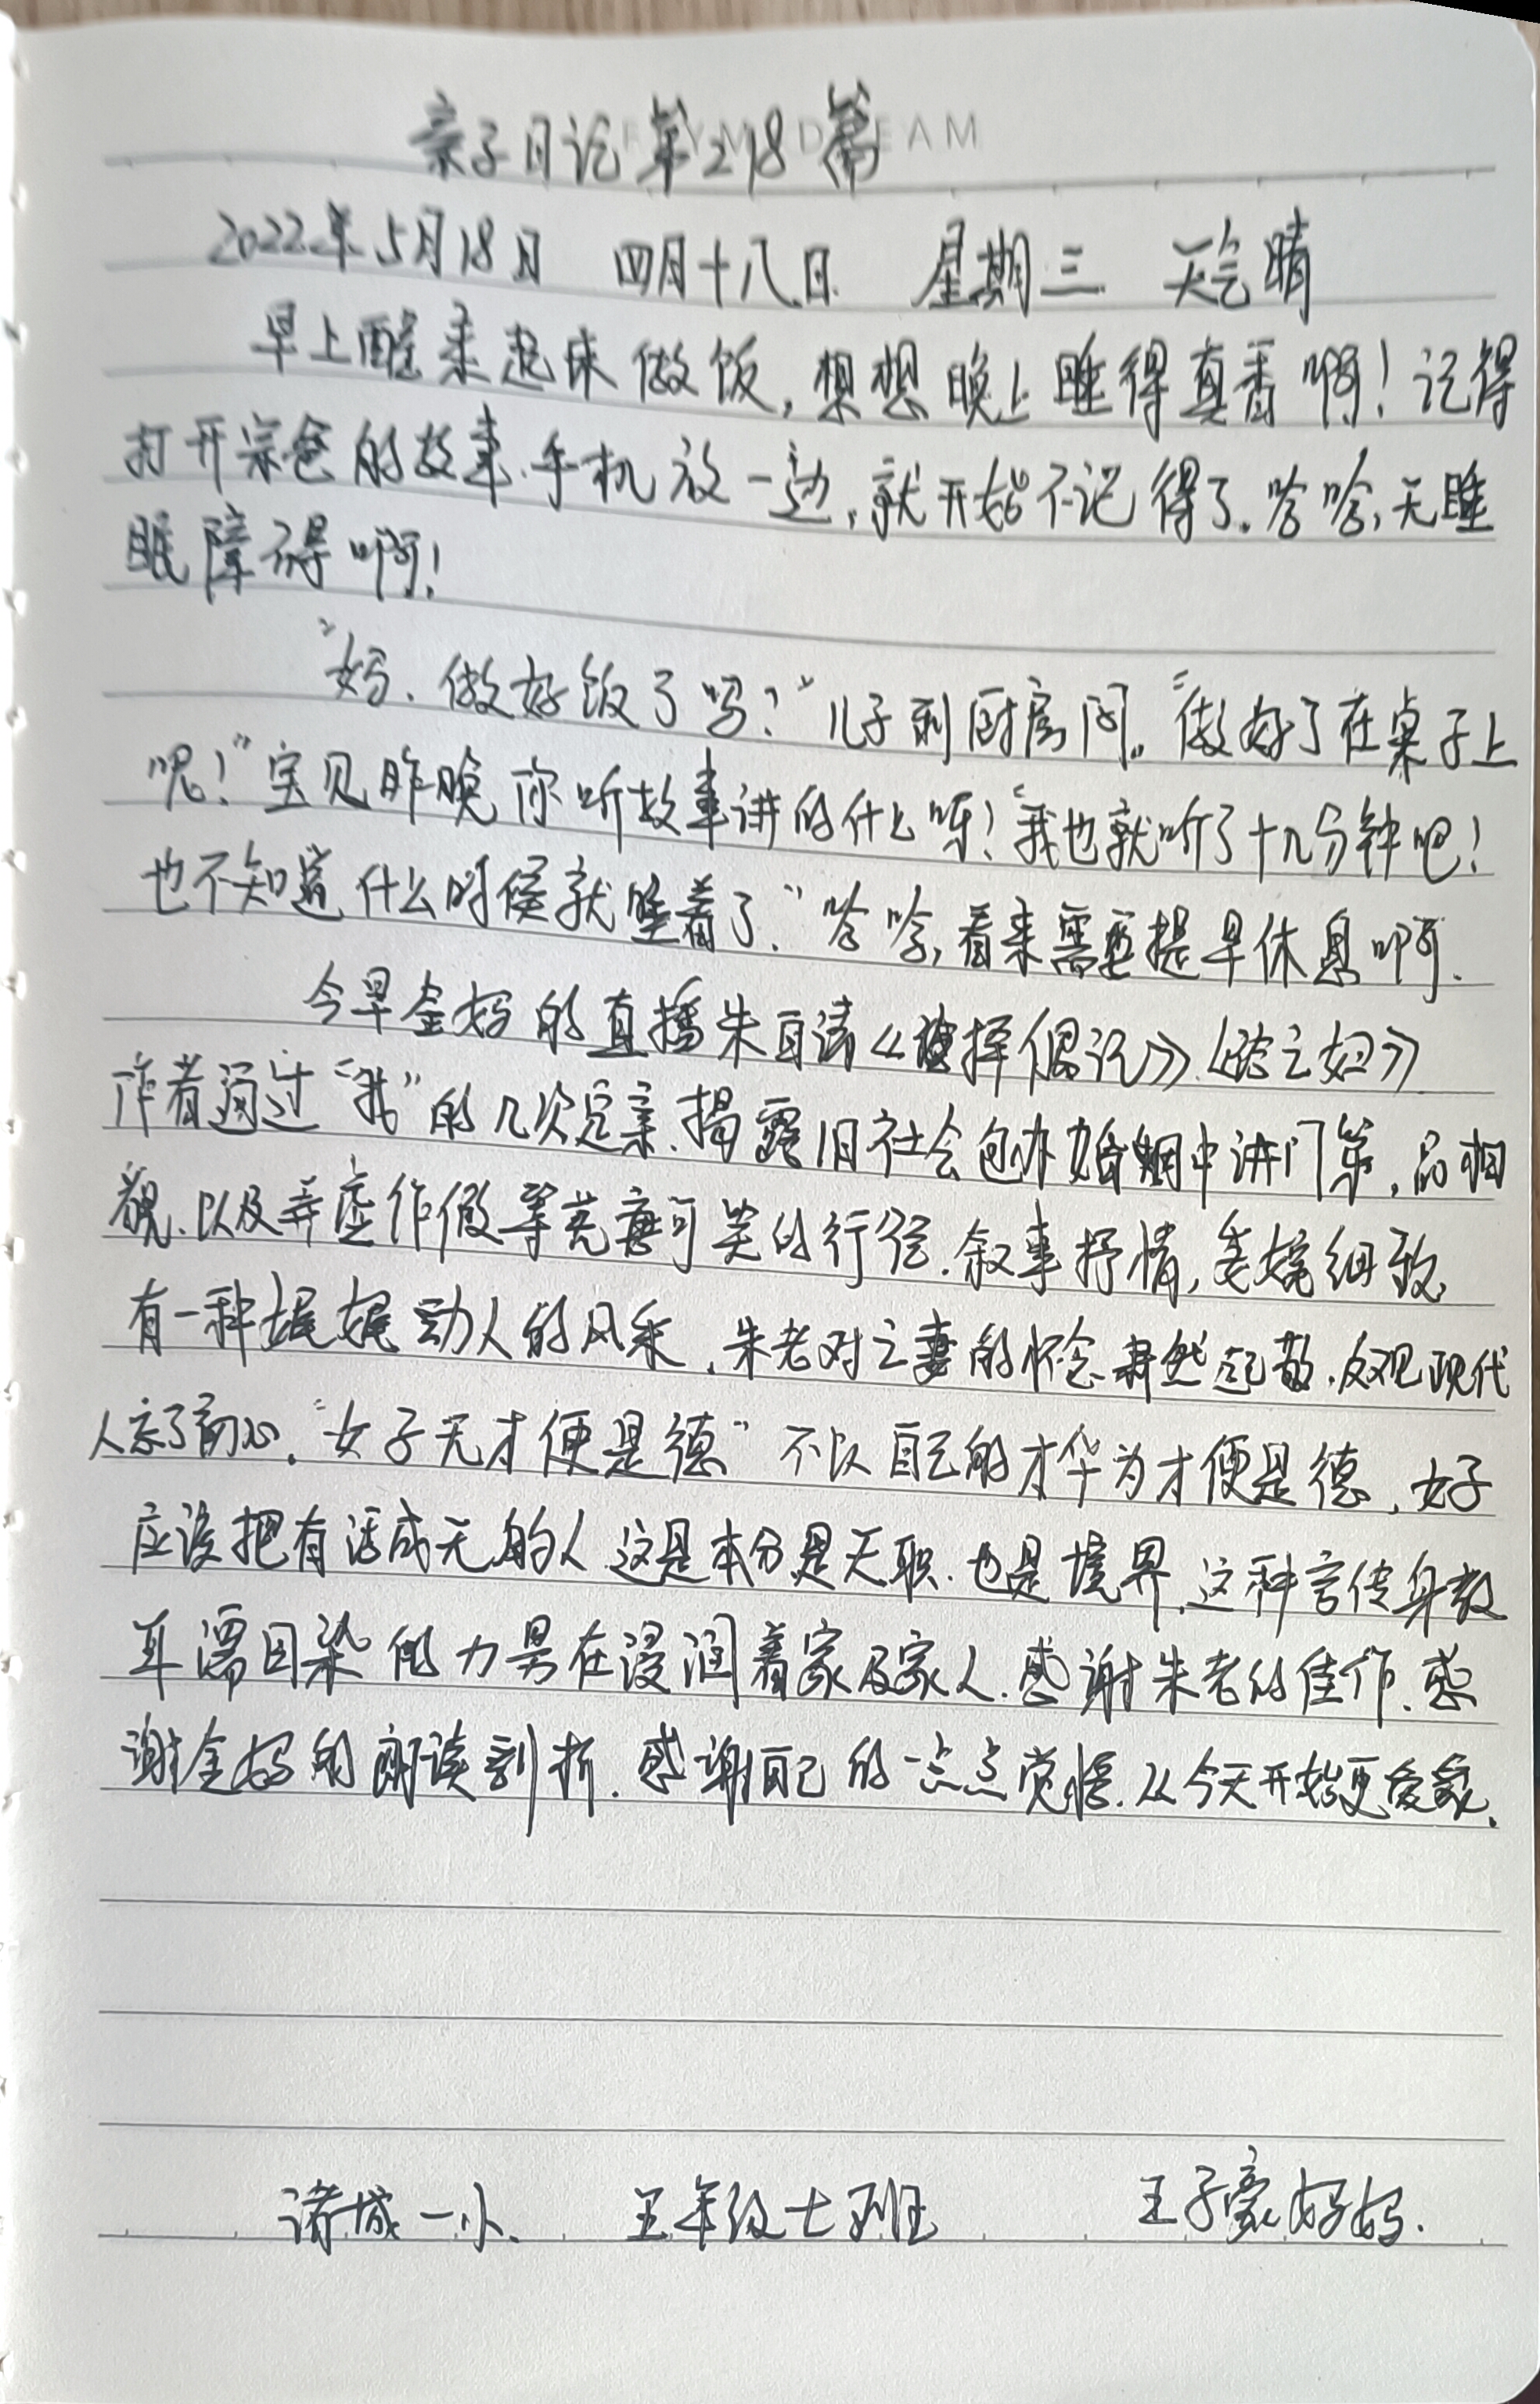 亲子日记第218篇
2022年5月18日 四月十八日 星期三 天气晴
早上醒来起床做饭，想想晚上睡得真香啊！记得
打开宗爸的故事.手机放一边，就开始不记得了。哈哈，无睡
眠障碍啊！
"妈.做好饭了吗？"儿子到厨房问。"做好了在桌子上
呢！"宝贝昨晚你听故事讲的什么呀！"我也就听了十几分钟吧！
也不知道什么时候就睡着了."哈哈，看来需要提早休息啊.
今早金妈的直播朱自清《择偶记》.《之妇》
作者通过"我"的几次定亲.揭露旧社会包办婚姻中讲门第，品相
貌.以及弄虚作假等荒唐可笑的行径.叙事抒情，委婉细致
有一种娓娓动人的风采.朱老对亡妻的怀念肃然起敬.反观现代
人忘了初心."女子无才便是德"不以自己的才华为才便是德，女子
应该把有活成无的人这是本分是天职.也是境界.这种言传身教
耳濡目染的力量在浸润着家及家人.感谢朱老的佳作.感
谢金妈的朗读剖析.感谢自己的一点点觉悟.从今天开始更爱家.
诸城一小. 五年级七班 王子豪妈妈.